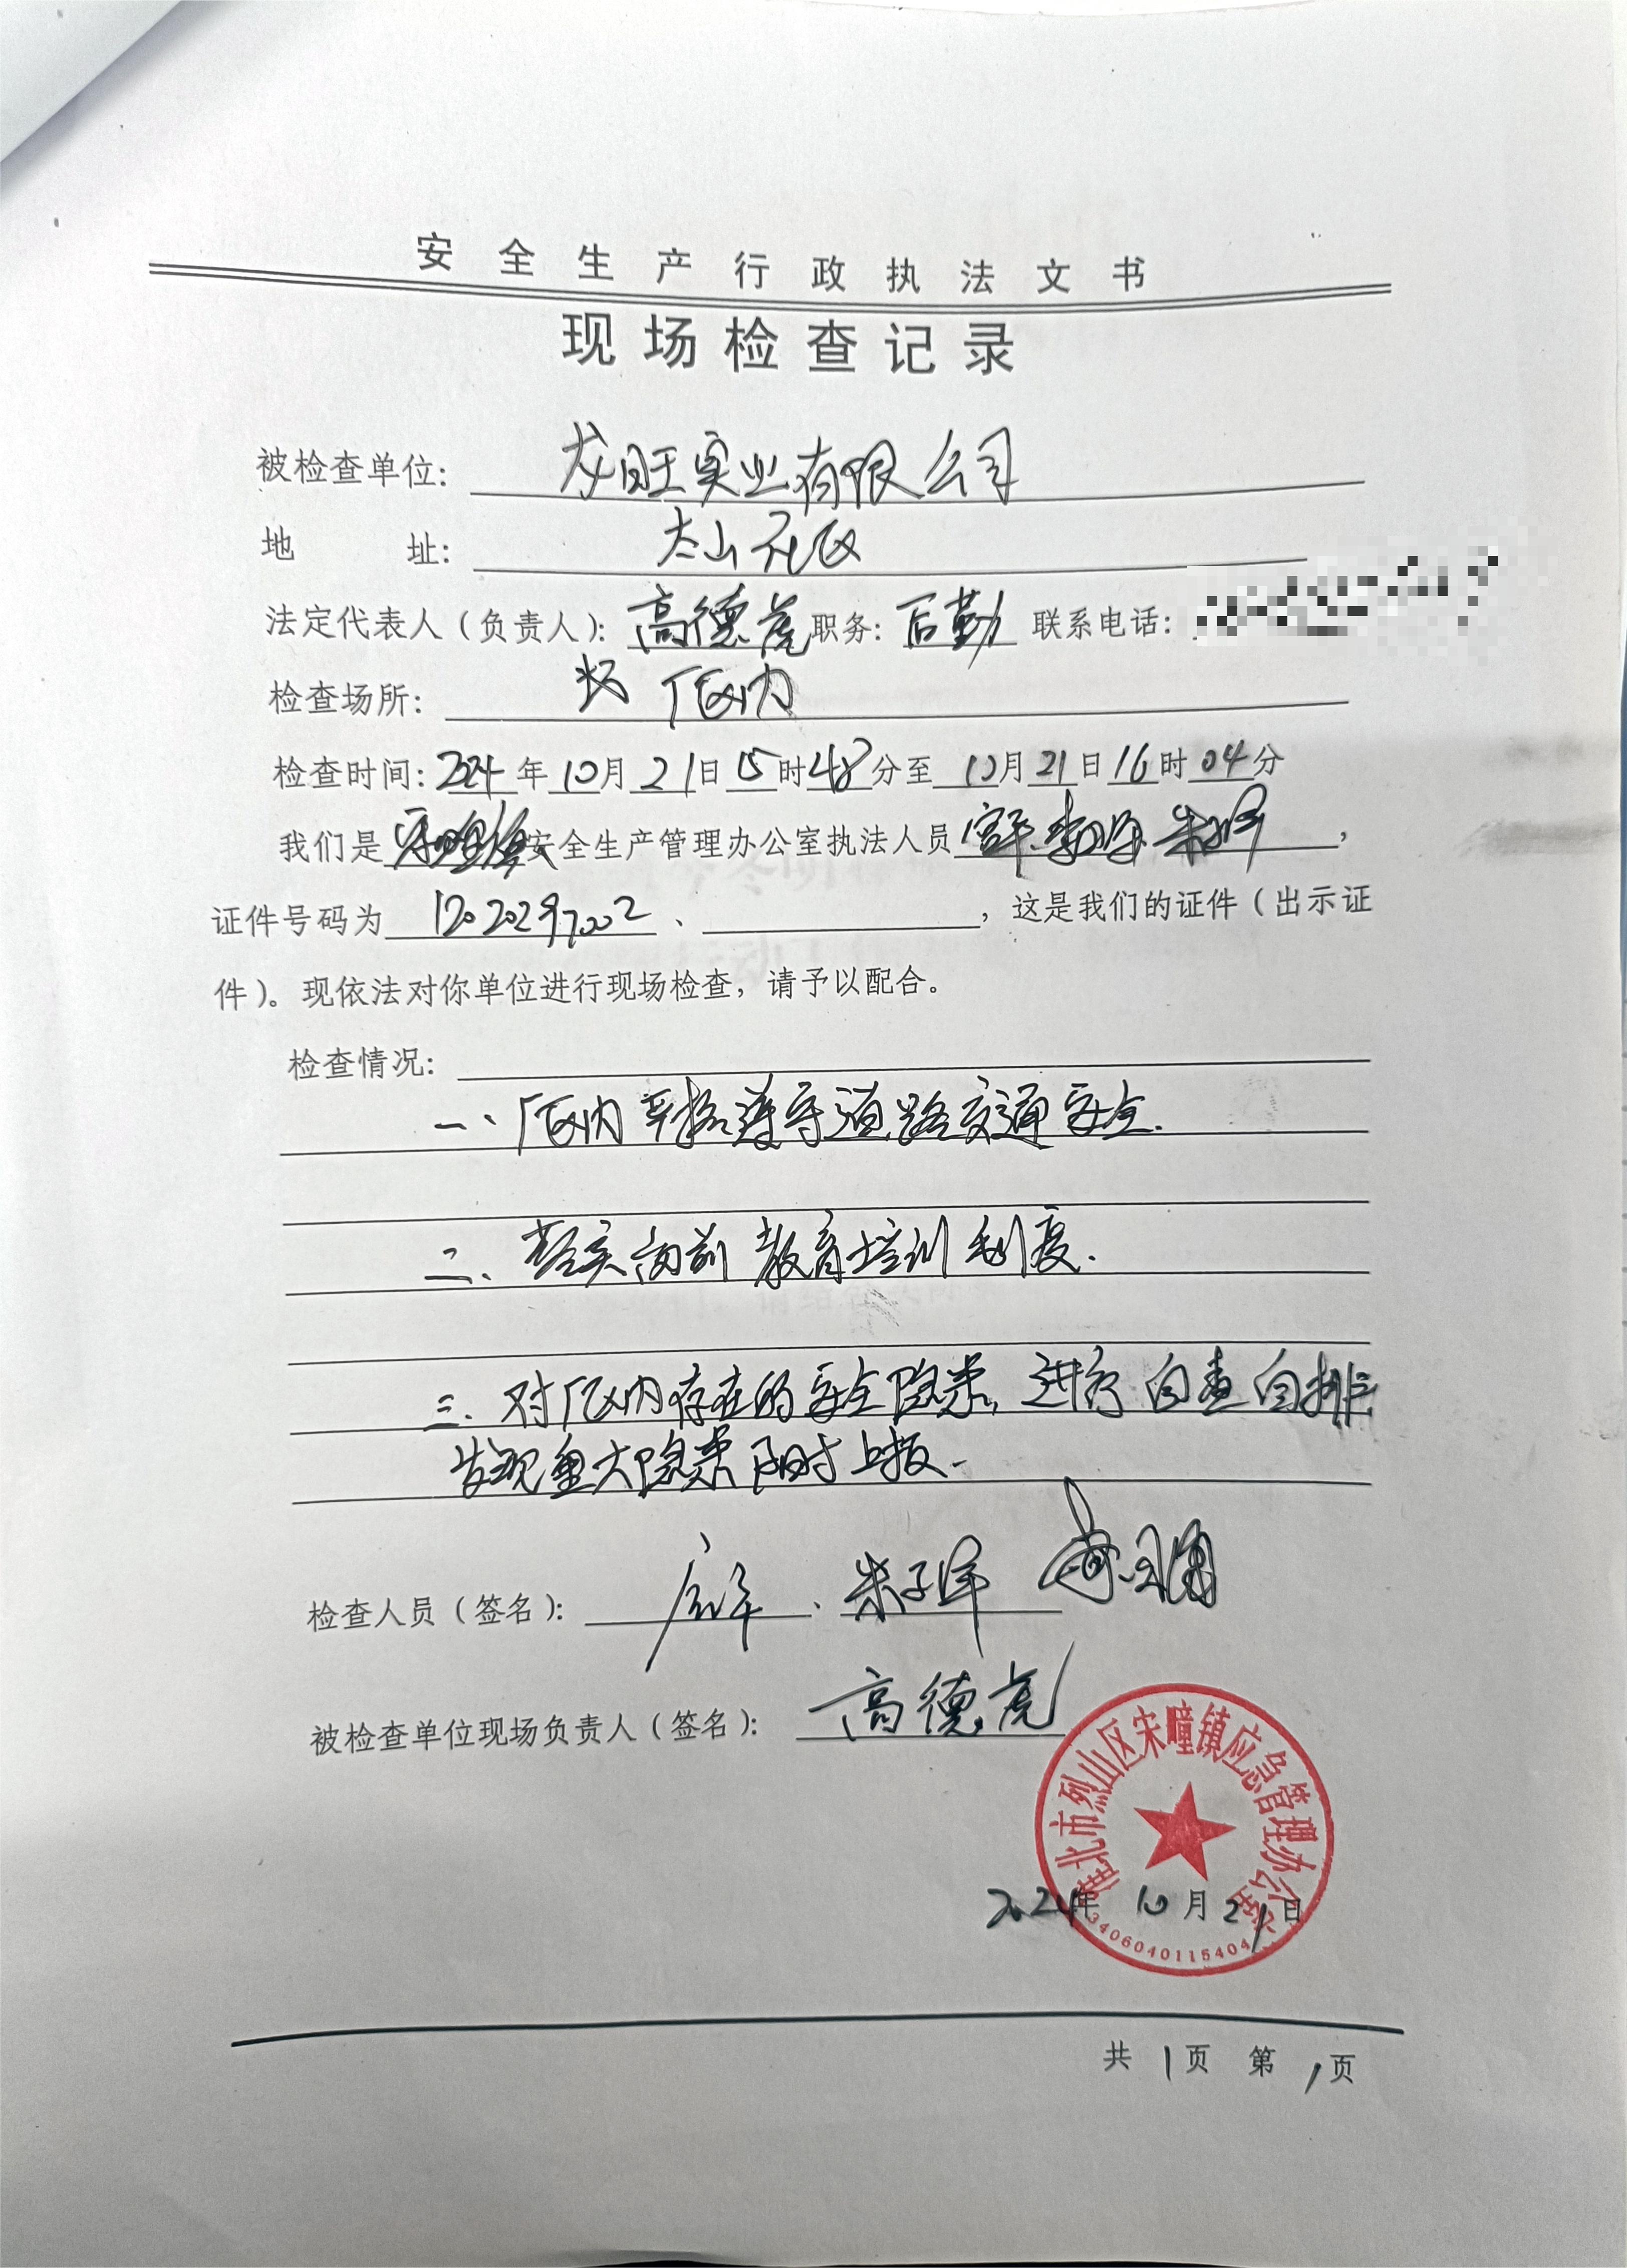 安全生产行政执法文书
现场检查记录
被检查单位: 龙旺实业有限公司
地 址: 太山社区
法定代表人（负责人）: 高德虎 职务: 后勤 联系电话:
检查场所: 厂区内
检查时间: 2024年10月21日15时48分至10月21日16时04分
我们是 安全生产管理办公室执法人员 ，
证件号码为 、 ，这是我们的证件（出示证
件）。现依法对你单位进行现场检查，请予以配合。
检查情况:
一、厂区内严格遵守道路交通安全.
二、落实岗前教育培训制度.
三、对厂区内存在的安全隐患，进行自查自排
发现重大隐患及时上报.
检查人员（签名）: 朱子军
被检查单位现场负责人（签名）: 高德虎
淮北市烈山区宋疃镇应急管理办公室
2024年10月21日
3406040115404
共1页 第1页